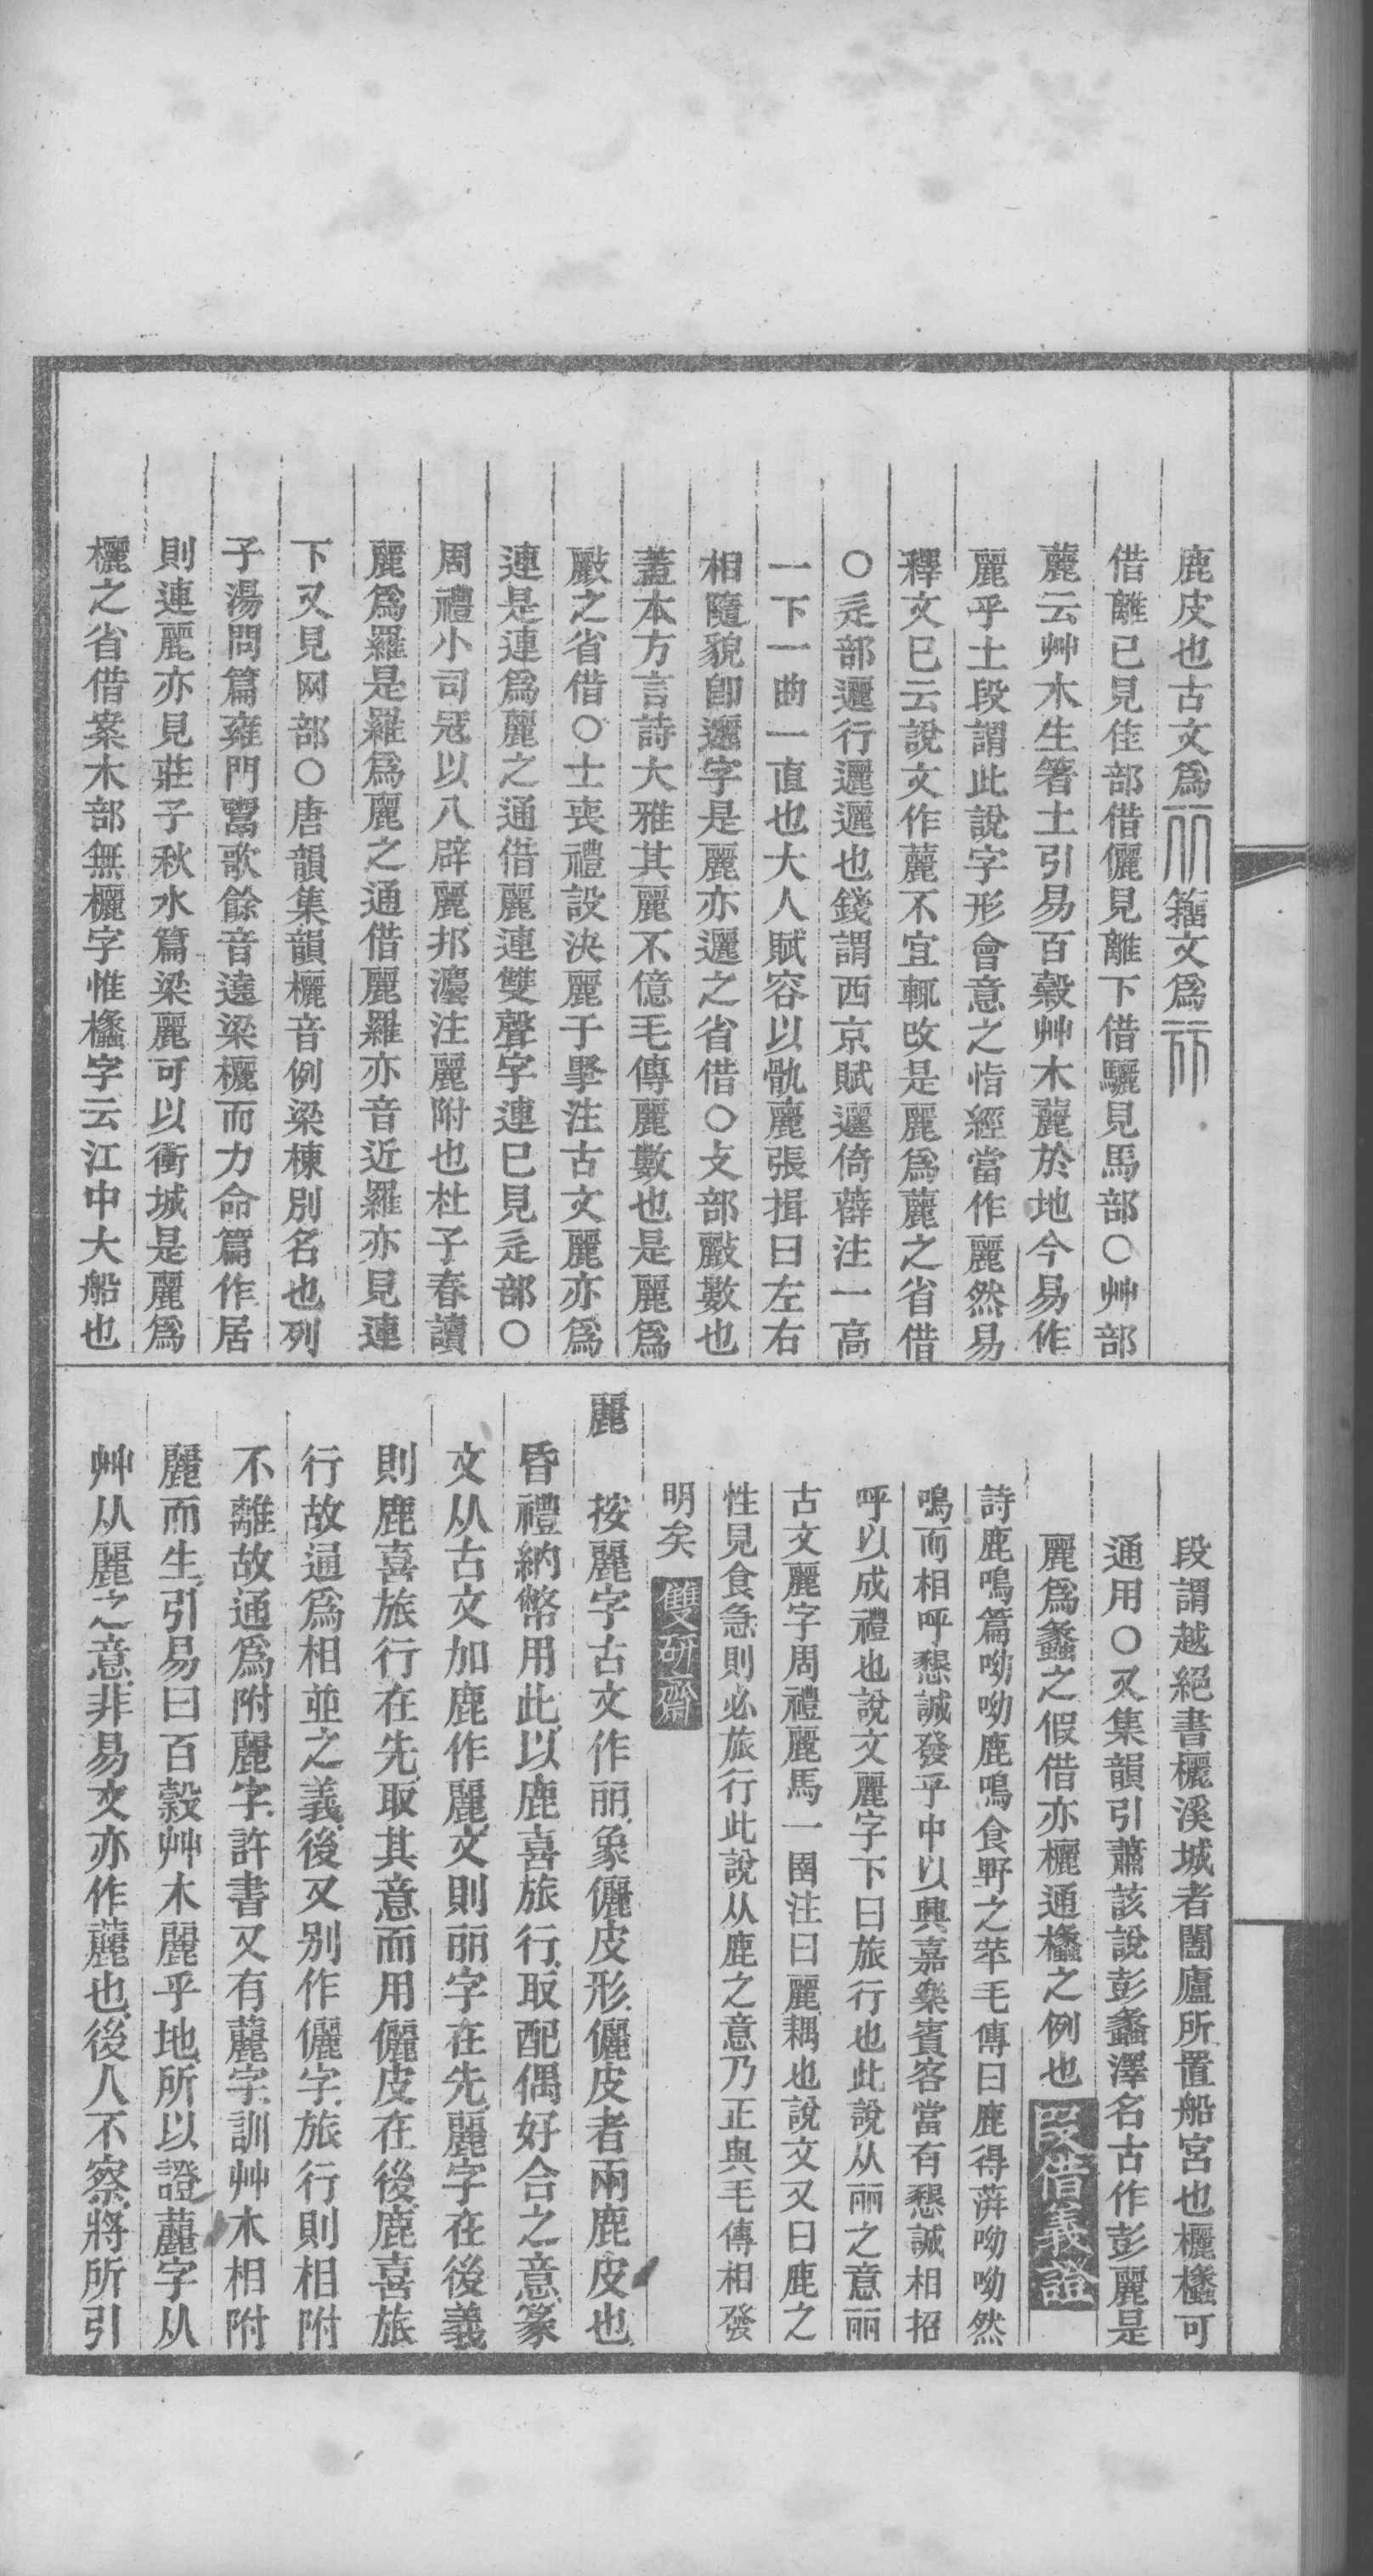 鹿皮也古文爲丽籒文爲
借離已見隹部借儷見離下借驪見馬部〇艸部
麗云艸木生箸土引易百穀艸木麗於地今易作
麗乎土段謂此說字形會意之恉經當作麗然易
釋文已云說文作麗不宜輒改是麗爲麗之省借
〇辵部邐行邐邐也錢謂西京賦邐倚薛注一高
一下一曲一直也大人賦容以骫麗張揖曰左右
相隨貌卽邐字是麗亦邐之省借〇攴部𢿛數也
蓋本方言詩大雅其麗不億毛傳麗數也是麗爲
𢿛之省借〇士喪禮設決麗于掔注古文麗亦爲
連是連爲麗之通借麗連雙聲字連已見辵部〇
周禮小司寇以八辟麗邦灋注麗附也杜子春讀
麗爲羅是羅爲麗之通借麗羅亦音近羅亦見連
下又見网部〇唐韻集韻欐音例梁棟別名也列
子湯問篇雍門鬻歌餘音遶梁欐而力命篇作居
則連麗亦見莊子秋水篇梁麗可以衝城是麗爲
欐之省借案木部無欐字惟欚字云江中大船也
段謂越絕書欐溪城者闔廬所置船宮也欐欚可
通用〇又集韻引蕭該說彭蠡澤名古作彭麗是
麗爲蠡之假借亦欐通欚之例也 叚借義證
詩鹿鳴篇呦呦鹿鳴食野之苹毛傳曰鹿得蓱呦呦然
鳴而相呼懇誠發乎中以興嘉樂賓客當有懇誠相招
呼以成禮也說文麗字下曰旅行也此說从丽之意丽
古文麗字周禮麗馬一圉注曰麗耦也說文又曰鹿之
性見食急則必旅行此說从鹿之意乃正與毛傳相發
明矣 雙研齋
麗 按麗字古文作丽象儷皮形儷皮者兩鹿皮也
昏禮納幣用此以鹿喜旅行取配偶好合之意篆
文从古文加鹿作麗文則丽字在先麗字在後義
則鹿喜旅行在先取其意而用儷皮在後鹿喜旅
行故通爲相並之義後又別作儷字旅行則相附
不離故通爲附麗字許書又有麗字訓艸木相附
麗而生引易曰百穀艸木麗乎地所以證麗字从
艸从麗之意非易文亦作麗也後人不察將所引